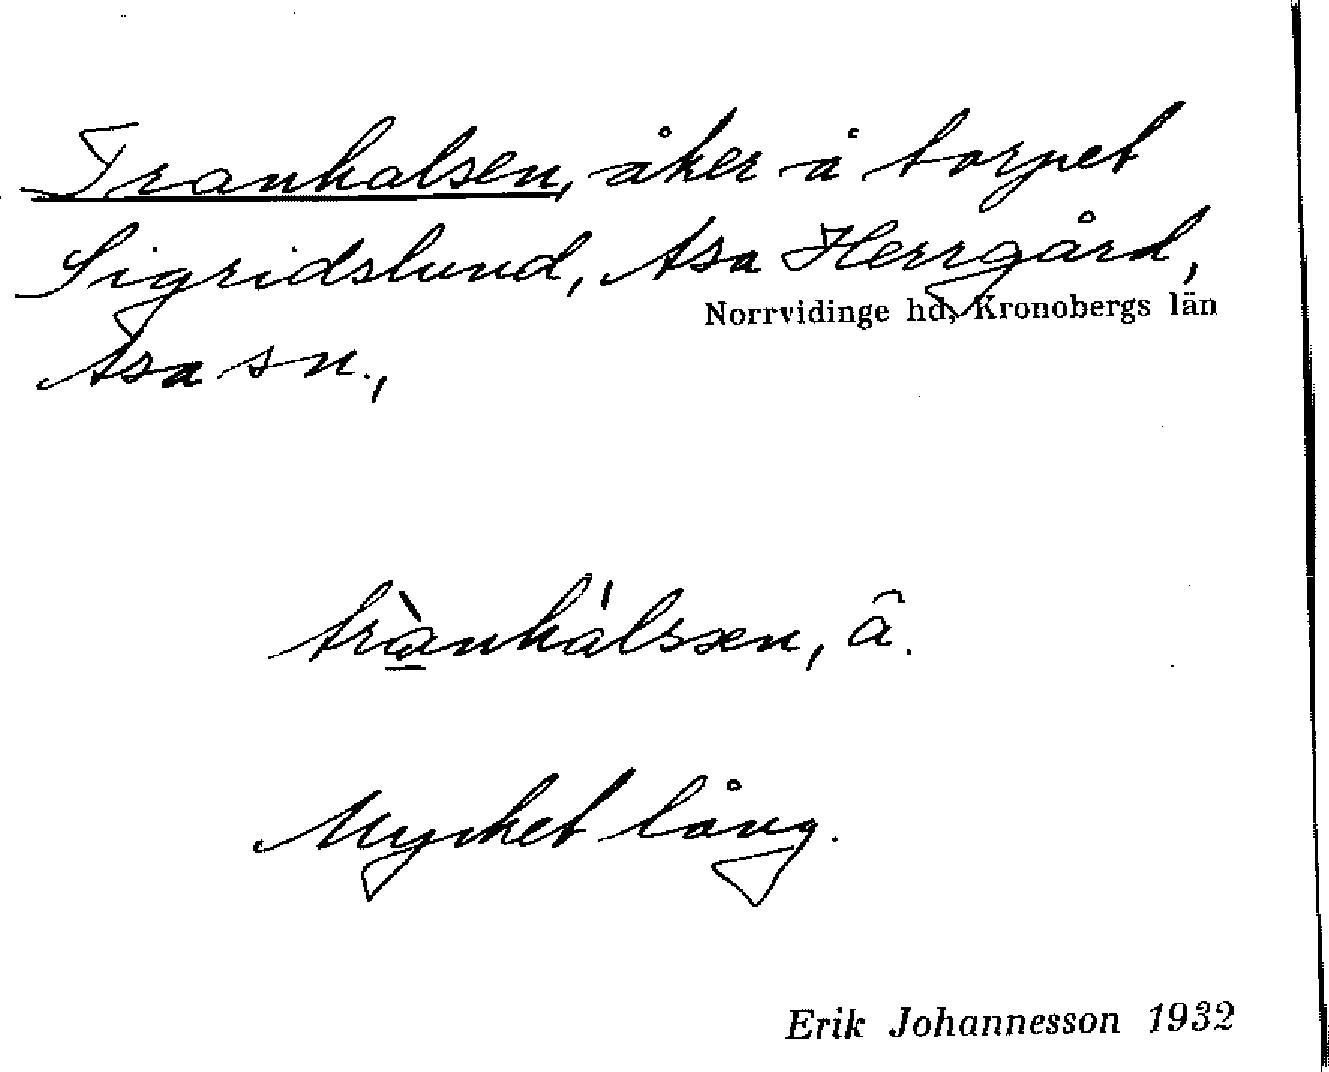 Tranhalsen, åker å torpet
Sigridslund, Asa Herrgård,
Norrvidinge hd, Kronobergs län
Asa sn.,
trànhálssen, â.
Mycket lång.
Erik Johannesson 1932